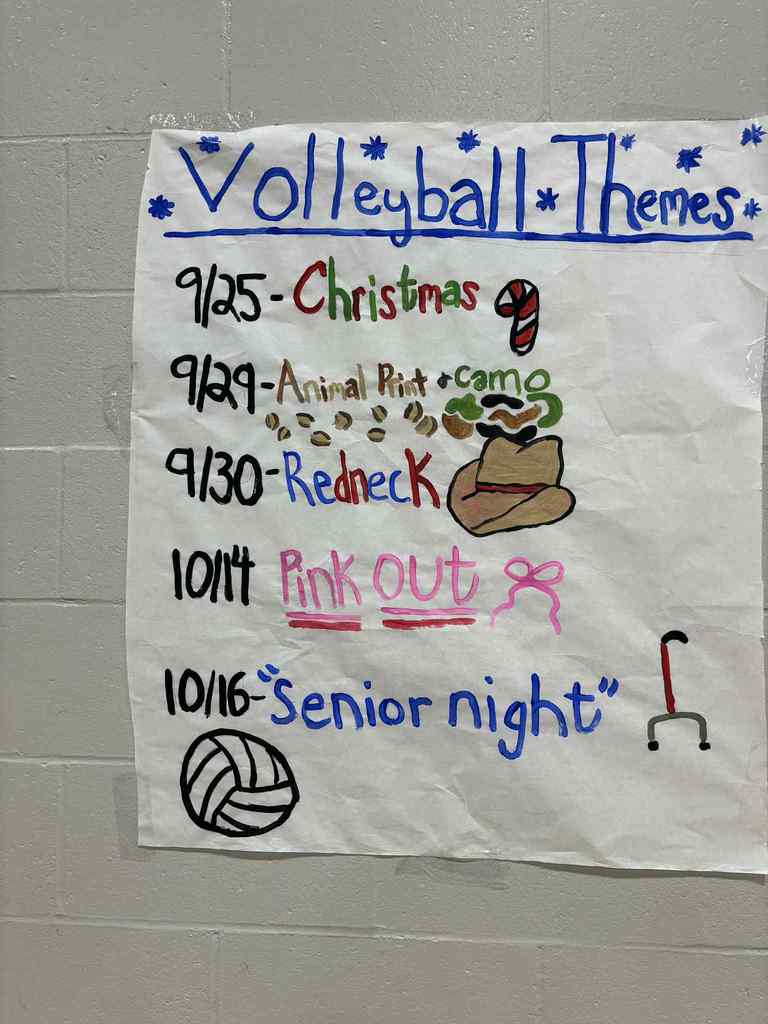 Volleyball Themes
9/25-Christmas
9/29-Animal Print + camo
9/30-Redneck
10/14 Pink out
10/16-"Senior night"